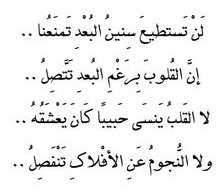 لَنْ تَستطيعَ سِنينُ البُعْدِ تمنَعُنا ..
إنَّ القُلوبَ بِرَغْمِ البُعدِ تَتَّصِلُ ..
لا القَلبُ يَنسَى حَبيبًا كَانَ يَعْشَقُهُ ..
ولا النُّجومُ عَنِ الأفْلاكِ تَنْفَصِلُ ..